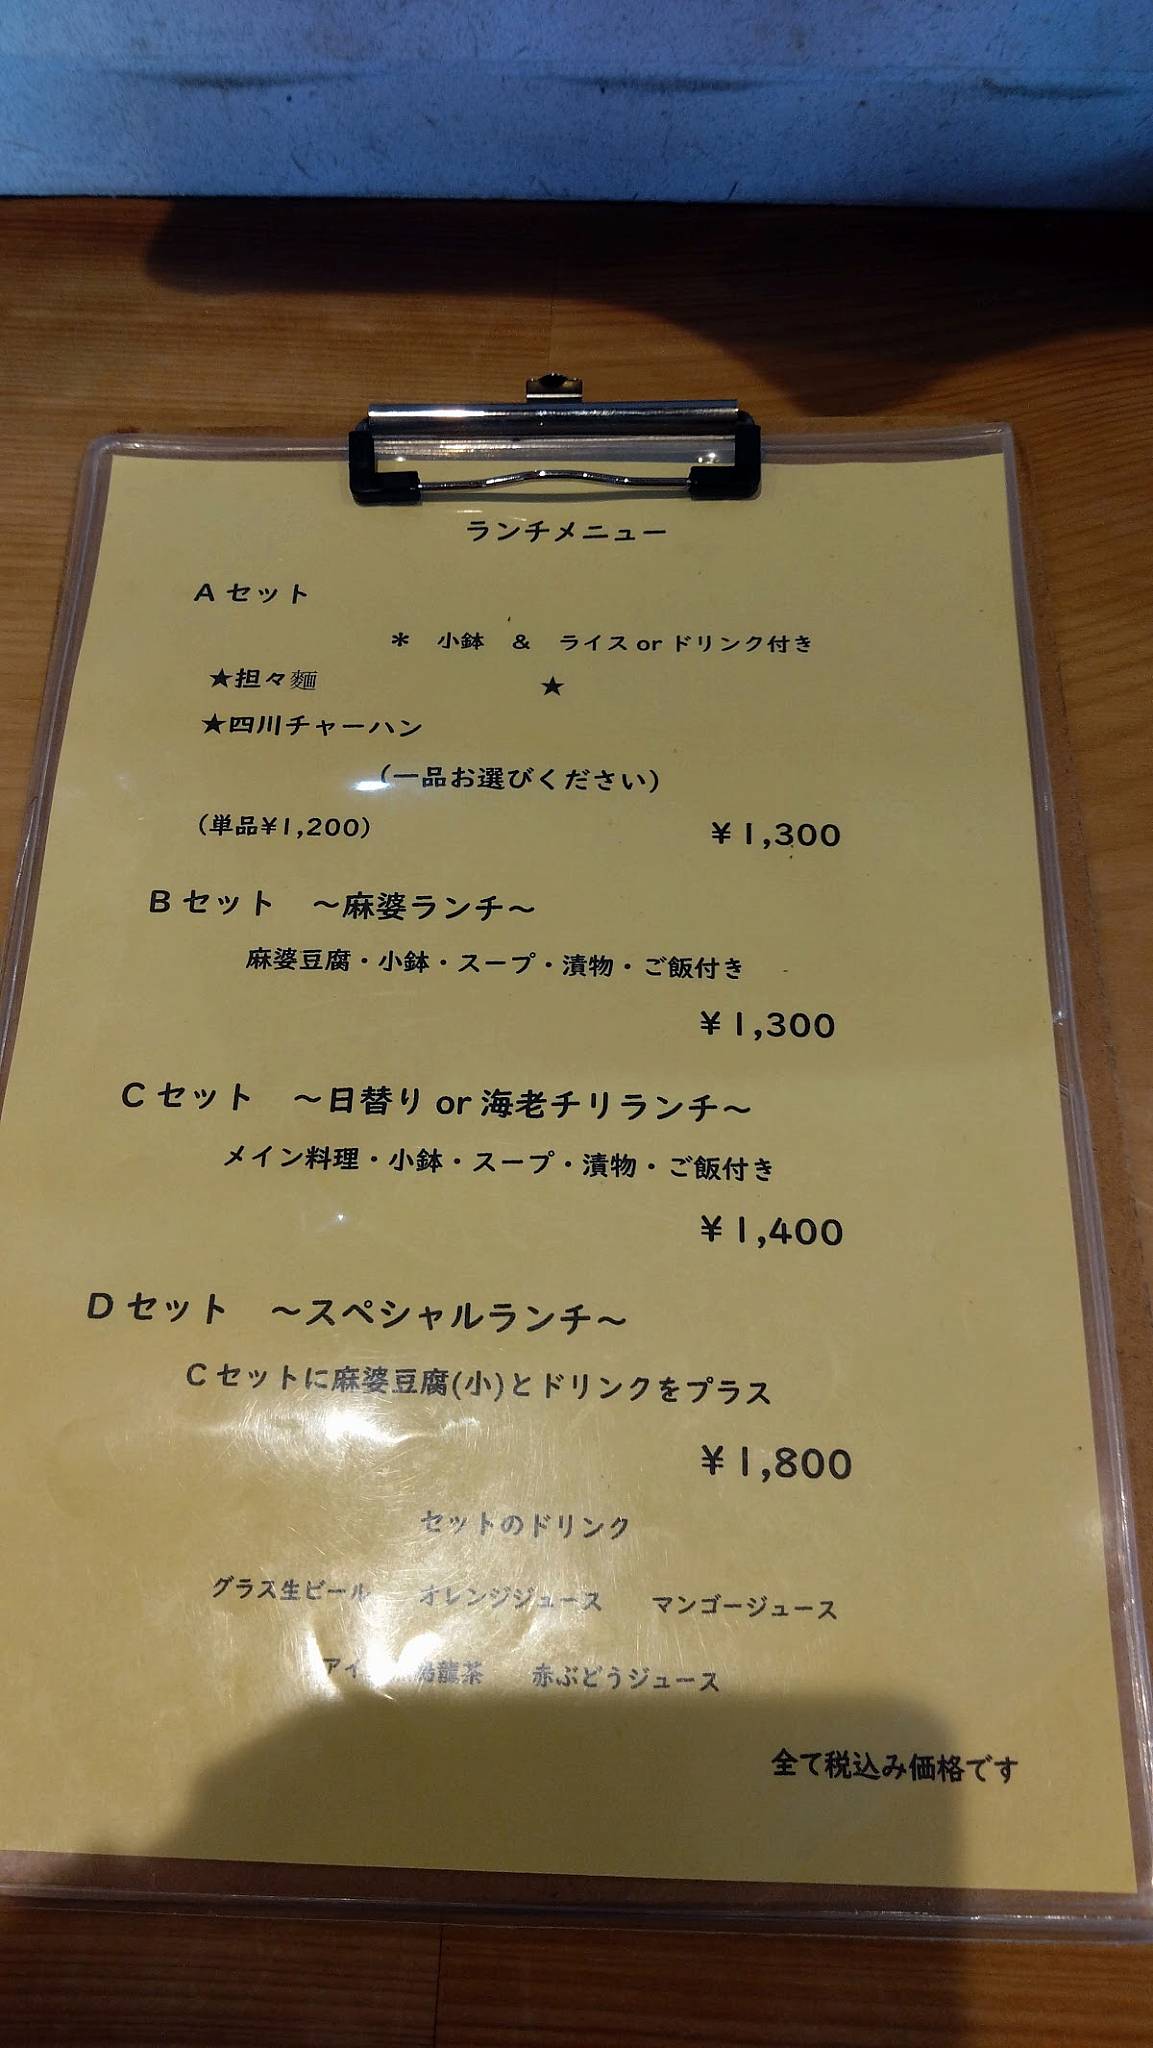 ランチメニュー
A セット
＊ 小鉢 & ライス or ドリンク付き
★担々麵 ★
★四川チャーハン
（一品お選びください）
（単品¥1,200）　¥1,300
B セット　～麻婆ランチ～
麻婆豆腐・小鉢・スープ・漬物・ご飯付き
¥1,300
C セット　～日替り or 海老チリランチ～
メイン料理・小鉢・スープ・漬物・ご飯付き
¥1,400
D セット　～スペシャルランチ～
C セットに麻婆豆腐(小)とドリンクをプラス
¥1,800
セットのドリンク
グラス生ビール　オレンジジュース　マンゴージュース
烏龍茶　赤ぶどうジュース
全て税込み価格です